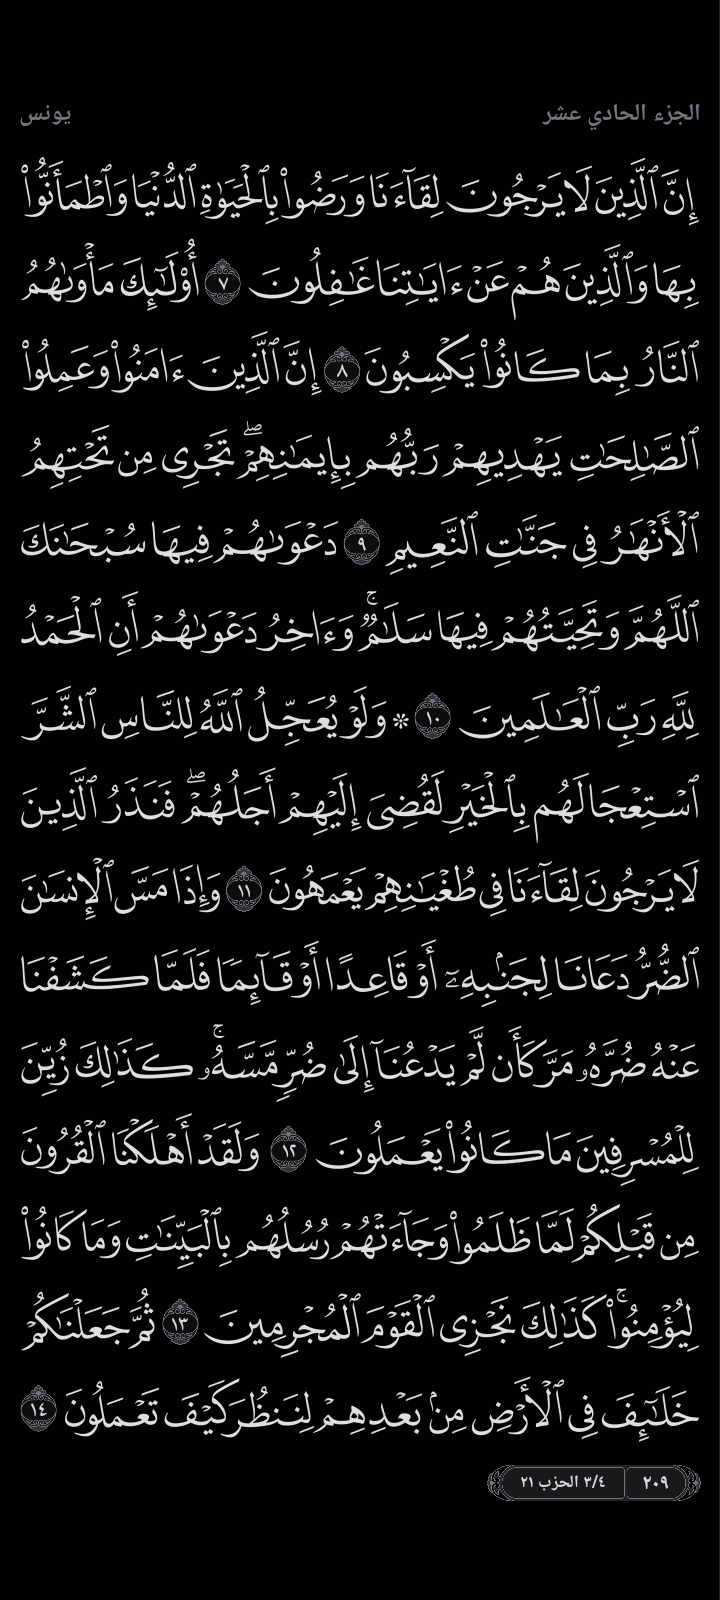 الجزء الحادي عشر
يونس
إِنَّ ٱلَّذِينَ لَا يَرْجُونَ لِقَآءَنَا وَرَضُوا۟ بِٱلْحَيَوٰةِ ٱلدُّنْيَا وَٱطْمَأَنُّوا۟
بِهَا وَٱلَّذِينَ هُمْ عَنْ ءَايَٰتِنَا غَٰفِلُونَ ٧ أُو۟لَٰٓئِكَ مَأْوَىٰهُمُ
ٱلنَّارُ بِمَا كَانُوا۟ يَكْسِبُونَ ٨ إِنَّ ٱلَّذِينَ ءَامَنُوا۟ وَعَمِلُوا۟
ٱلصَّٰلِحَٰتِ يَهْدِيهِمْ رَبُّهُم بِإِيمَٰنِهِمْۖ تَجْرِى مِن تَحْتِهِمُ
ٱلْأَنْهَٰرُ فِى جَنَّٰتِ ٱلنَّعِيمِ ٩ دَعْوَىٰهُمْ فِيهَا سُبْحَٰنَكَ
ٱللَّهُمَّ وَتَحِيَّتُهُمْ فِيهَا سَلَٰمٌۚ وَءَاخِرُ دَعْوَىٰهُمْ أَنِ ٱلْحَمْدُ
لِلَّهِ رَبِّ ٱلْعَٰلَمِينَ ١٠ ۞ وَلَوْ يُعَجِّلُ ٱللَّهُ لِلنَّاسِ ٱلشَّرَّ
ٱسْتِعْجَالَهُم بِٱلْخَيْرِ لَقُضِىَ إِلَيْهِمْ أَجَلُهُمْۖ فَنَذَرُ ٱلَّذِينَ
لَا يَرْجُونَ لِقَآءَنَا فِى طُغْيَٰنِهِمْ يَعْمَهُونَ ١١ وَإِذَا مَسَّ ٱلْإِنسَٰنَ
ٱلضُّرُّ دَعَانَا لِجَنۢبِهِۦٓ أَوْ قَاعِدًا أَوْ قَآئِمًا فَلَمَّا كَشَفْنَا
عَنْهُ ضُرَّهُۥ مَرَّ كَأَن لَّمْ يَدْعُنَآ إِلَىٰ ضُرٍّ مَّسَّهُۥۚ كَذَٰلِكَ زُيِّنَ
لِلْمُسْرِفِينَ مَا كَانُوا۟ يَعْمَلُونَ ١٢ وَلَقَدْ أَهْلَكْنَا ٱلْقُرُونَ
مِن قَبْلِكُمْ لَمَّا ظَلَمُوا۟ وَجَآءَتْهُمْ رُسُلُهُم بِٱلْبَيِّنَٰتِ وَمَا كَانُوا۟
لِيُؤْمِنُوا۟ۚ كَذَٰلِكَ نَجْزِى ٱلْقَوْمَ ٱلْمُجْرِمِينَ ١٣ ثُمَّ جَعَلْنَٰكُمْ
خَلَٰٓئِفَ فِى ٱلْأَرْضِ مِنۢ بَعْدِهِمْ لِنَنظُرَ كَيْفَ تَعْمَلُونَ ١٤
٢٠٩
٣/٤ الحزب ٢١